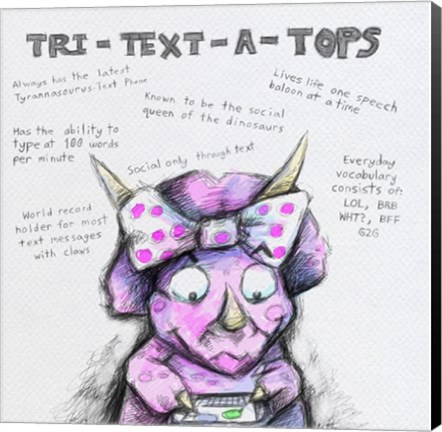 TRI-TEXT-A-TOPS
Always has the latest
Tyrannasourus-Text Phone
Known to be the social
queen of the dinosaurs
Lives life one speech
baloon at a time
Has the ability to
type at 100 words
per minute
Social only through text
Everyday
vocabulary
consists of:
LOL, BRB
WHT?, BFF
G2G
World record
holder for most
text messages
with claws